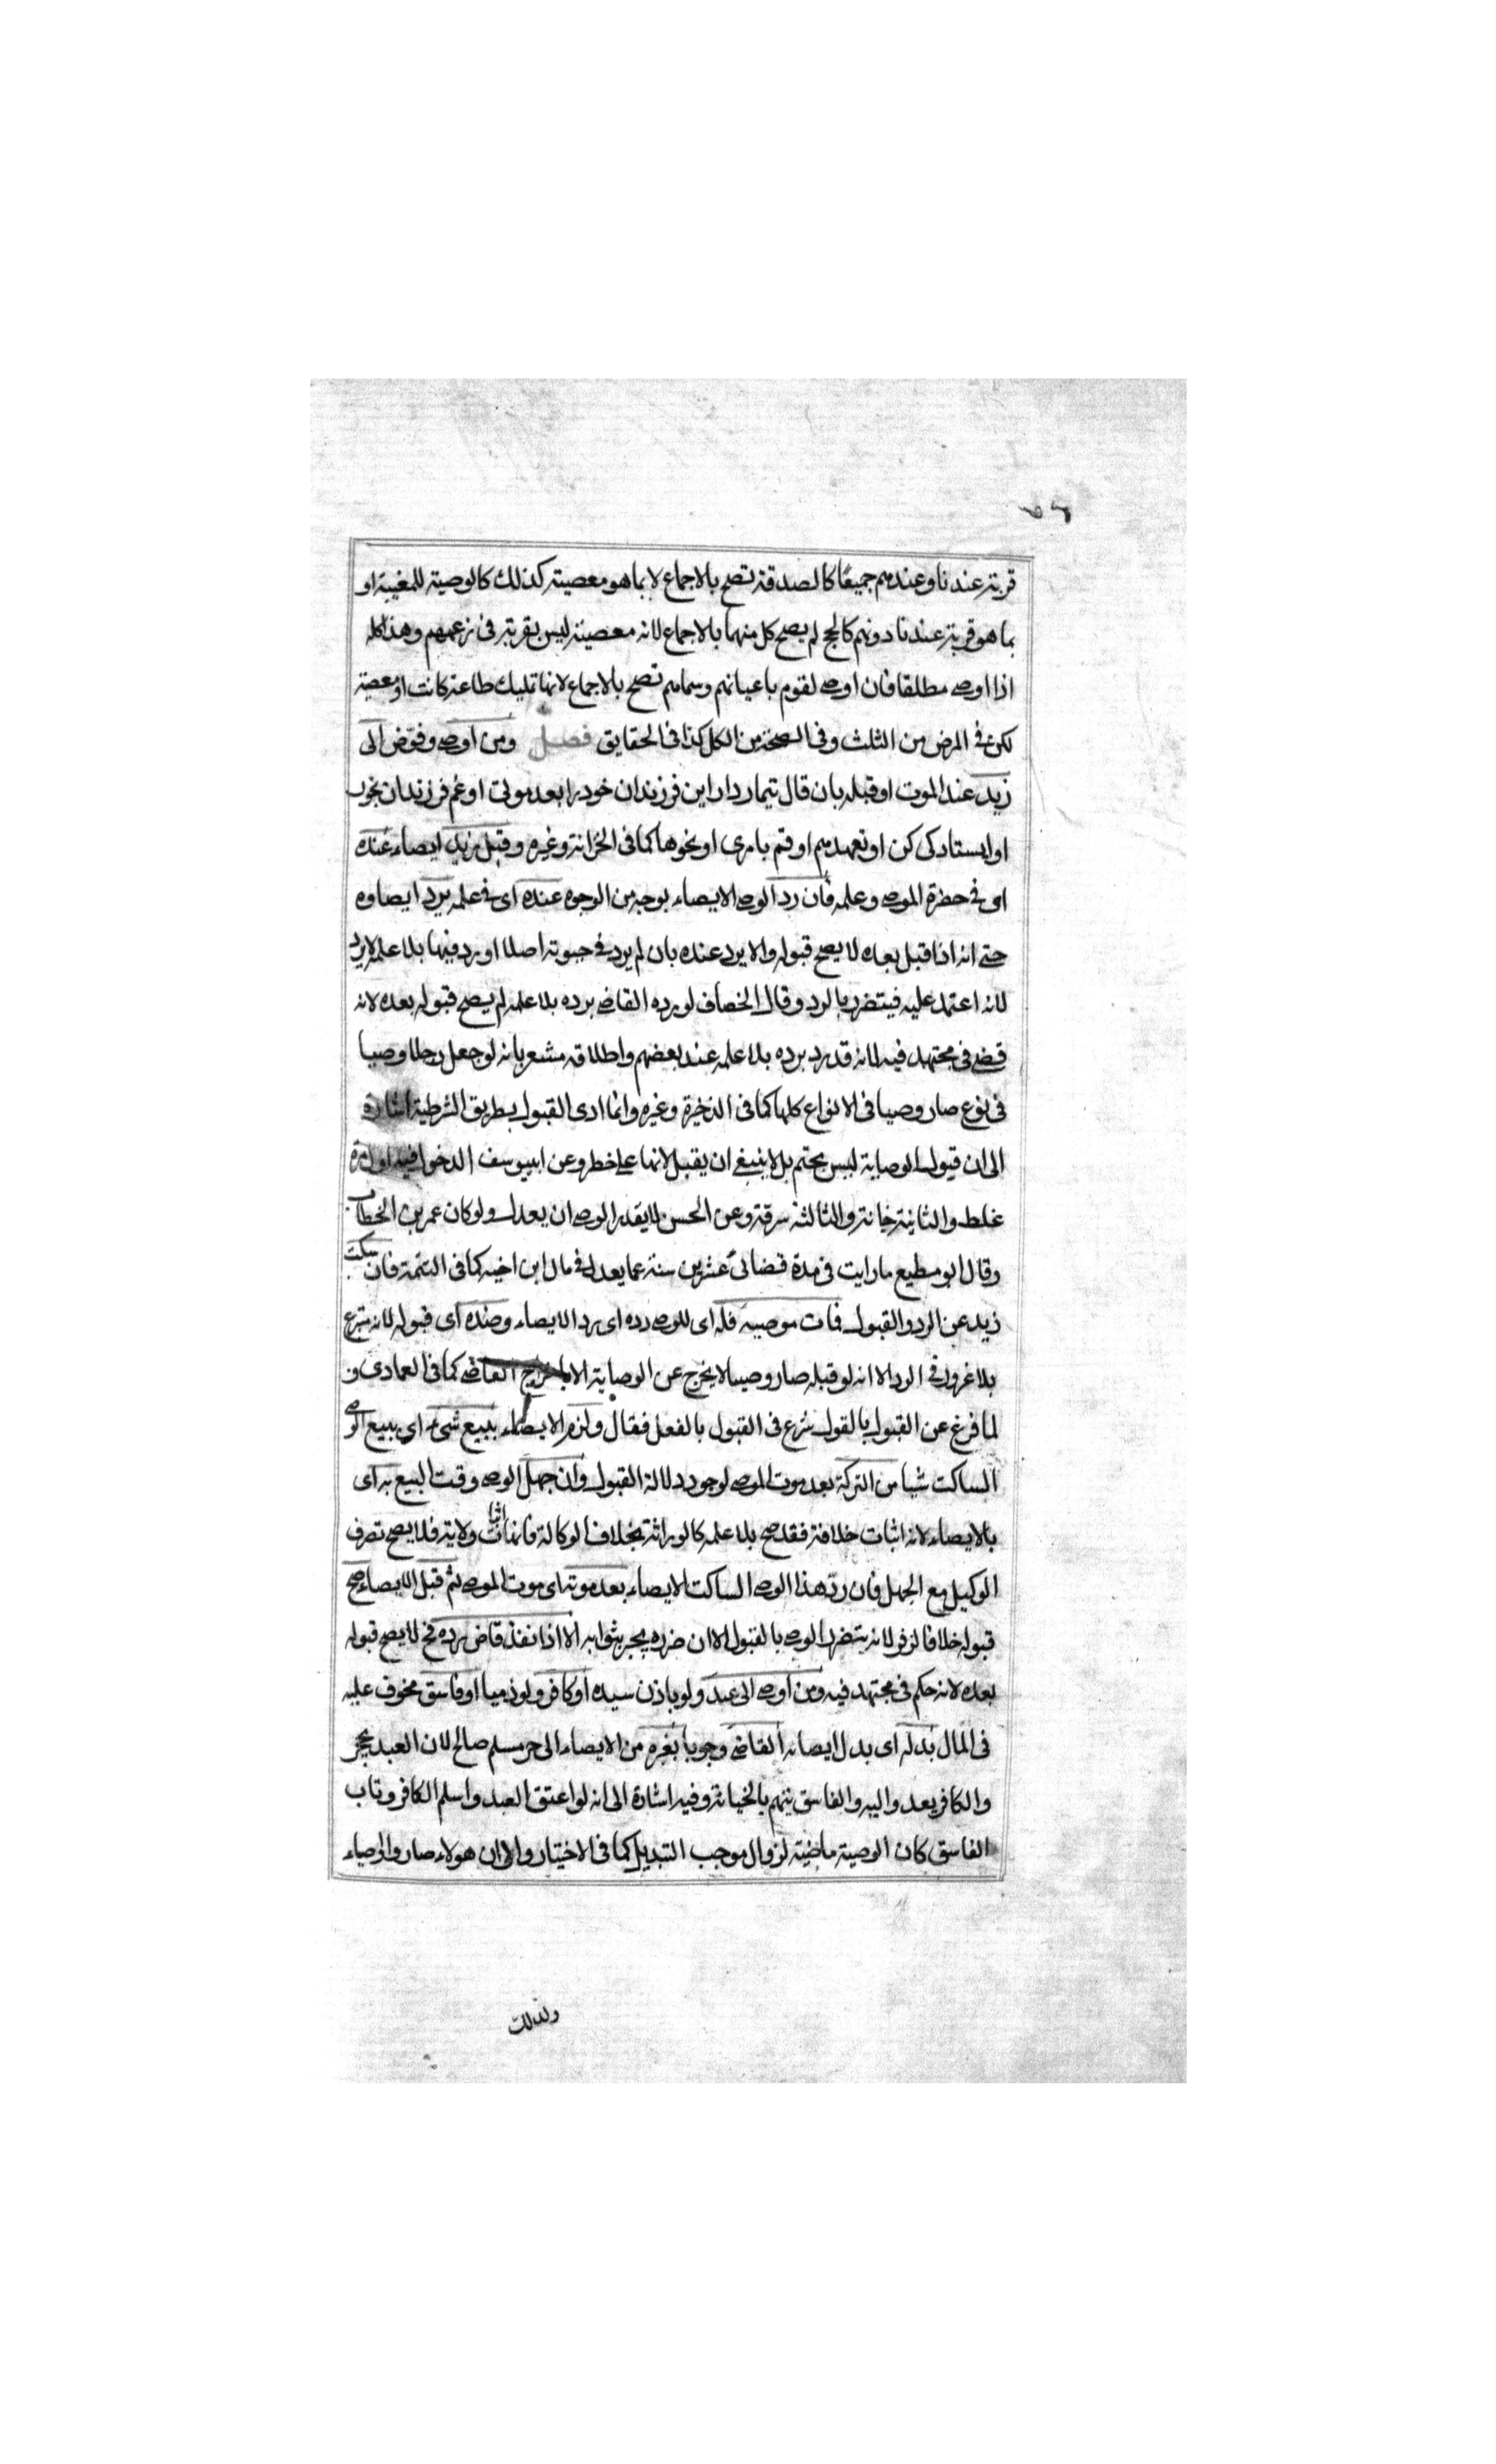 قربة عندنا وعندهم جميعًا كالصدقة تصح بالاجماع لا بما هو معصية كذلك كالوصية للمغنية او
بما هو قربة عندنا دونهم كالحج لم يصح كل منهما بالاجماع لانه معصية ليس بقربة فى زعمهم وهذا كله
اذا اوصى مطلقا فان اوصى لقوم باعيانهم وسماهم تصح بالاجماع لانها تمليك طاعة كانت او معصية
لكن فى المرض من الثلث وفى الصحة من الكل كذا فى الحقايق فصل ومن اوصى وفوّض الى
زيد عند الموت او قبله بان قال تيمار دار اين فرزندان خود را بعد موتى او غم فرزندان بخور
او ايستادكى كن او تعهدهم او قم بامرى او نحوها كما فى الخزانة وغيره وقبل زيد ايصاءه عنده
اى فى حضرة الموصى وعلمه فان رد الوصى الايصاء بوجه من الوجوه عنده اى فى علمه يرد ايصاوه
حتى انه اذا قبل بعده لا يصح قبوله والا يرد عنده بان لم يرد فى حيوته اصلا او رد فيها بلا علمه لا يرد
لانه اعتمد عليه فيتضرر بالرد وقال الخصاف لو رده القاضى برده بلا علمه لم يصح قبوله بعده لانه
قضى فى مجتهد فيه لانه قد يرد برده بلا علمه عند بعضهم واطلاقه مشعر بانه لو جعل رجلا وصيا
فى نوع صار وصيا فى الانواع كلها كما فى الذخيرة وغيره وانما ادى القبول بطريق الشرطية اشارة
الى ان قبول الوصاية ليس بحتم بل لا ينبغى ان يقبل لانها على خطر وعن ابييوسف الدخول فيه اول مرة
غلط والثانية خيانة والثالثة سرقة وعن الحسن لا يقدر الوصى ان يعدل ولو كان عمر بن الخطاب
وقال ابو مطيع ما رايت فى مدة قضائى عشرين سنة عما يعدل فى مال ابن اخيه كما فى التتمة فان سكت
زيد عن الرد والقبول فمات موصيه فله اى للوصى رده اى رد الايصاء وضده اى قبوله لانه متبرع
بلا غرور فى الرد الا انه لو قبله صار وصيا لا يخرج عن الوصاية الا باخراج القاضى كما فى العمادى و
لما فرغ عن القبول بالقول شرع فى القبول بالفعل فقال ولزم الايصاء ببيع شىء اى ببيع الوصى
الساكت شيا من التركة بعد موت الموصى لوجود دلالة القبول وان جهل الوصى وقت البيع به اى
بالايصاء لانه اثبات خلافة فقد صح بلا علمه كالوراثة بخلاف الوكالة فانها اثبات ولاية فلا يصح تصرف
الوكيل مع الجهل فان ردّ هذا الوصى الساكت الايصاء بعد موته اى موت الموصى ثم قبل الايصاء صح
قبوله خلافا لزفر لانه يتضرر الوصى بالقبول الا ان ضرره يجبر بثوابه الا اذا نفذ قاض رده فح لا يصح قبوله
بعده لانه حكم فى مجتهد فيه ومن اوصى الى عبد ولو باذن سيده او كافر ولو ذميا او فاسق مخوف عليه
فى المال بدله اى بدل ايصائه القاضى وجوبا بغيره من الايصاء الى حر مسلم صالح لان العبد يحجر
والكافر يعد واليه والفاسق يتهم بالخيانة وفيه اشارة الى انه لو اعتق العبد واسلم الكافر وتاب
الفاسق كان الوصية ماضية لزوال موجب التبديل كما فى الاختيار والى ان هولاء صاروا اوصياء
ولذلك